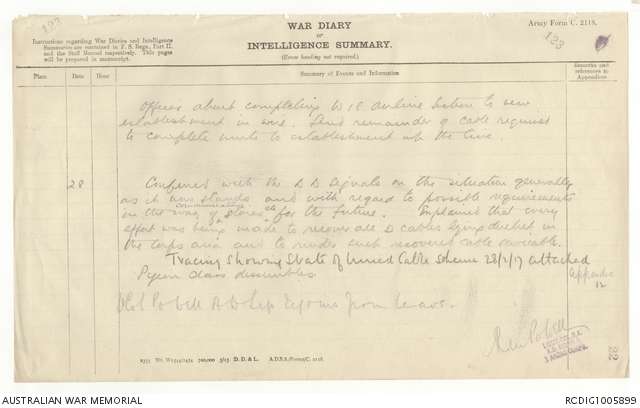 123
WAR DIARY
or
INTELLIGENCE SUMMARY.
(Erase heading not required.)
Army Form C. 2118.
123
Instructions regarding War Diaries and Intelligence
Summaries are contained in F. S. Regs., Part II.
and the Staff Manual respectively. Title pages
will be prepared in manuscript.
Place
Date
Hour
Summary of Events and Information
Remarks and
references to
Appendices
Officer about completing W/E Airline Section to new
establishment in wire. Send remainder of cable required
to complete units to establishment at the time.
28
Conferred with the D D Signals on the situation generally
as it now stands and with regard to possible requirements
in the way of communication stores etc for the future. Explained that every
effort was being made to recover all D cables lying derelict in
the Corps area and to render such recovered cable serviceable.
Tracing Showing State of Buried Cable Scheme 28/2/17 attached
Appendix
12
Pigeon class dissembles
Powell A D Sigs rejoins from leave.
Powell
22
2353 Wt. W2544/1454 700,000 5/15 D. D. & L. A.D.S.S./Forms/C. 2118.
AUSTRALIAN WAR MEMORIAL
RCDIG1005899